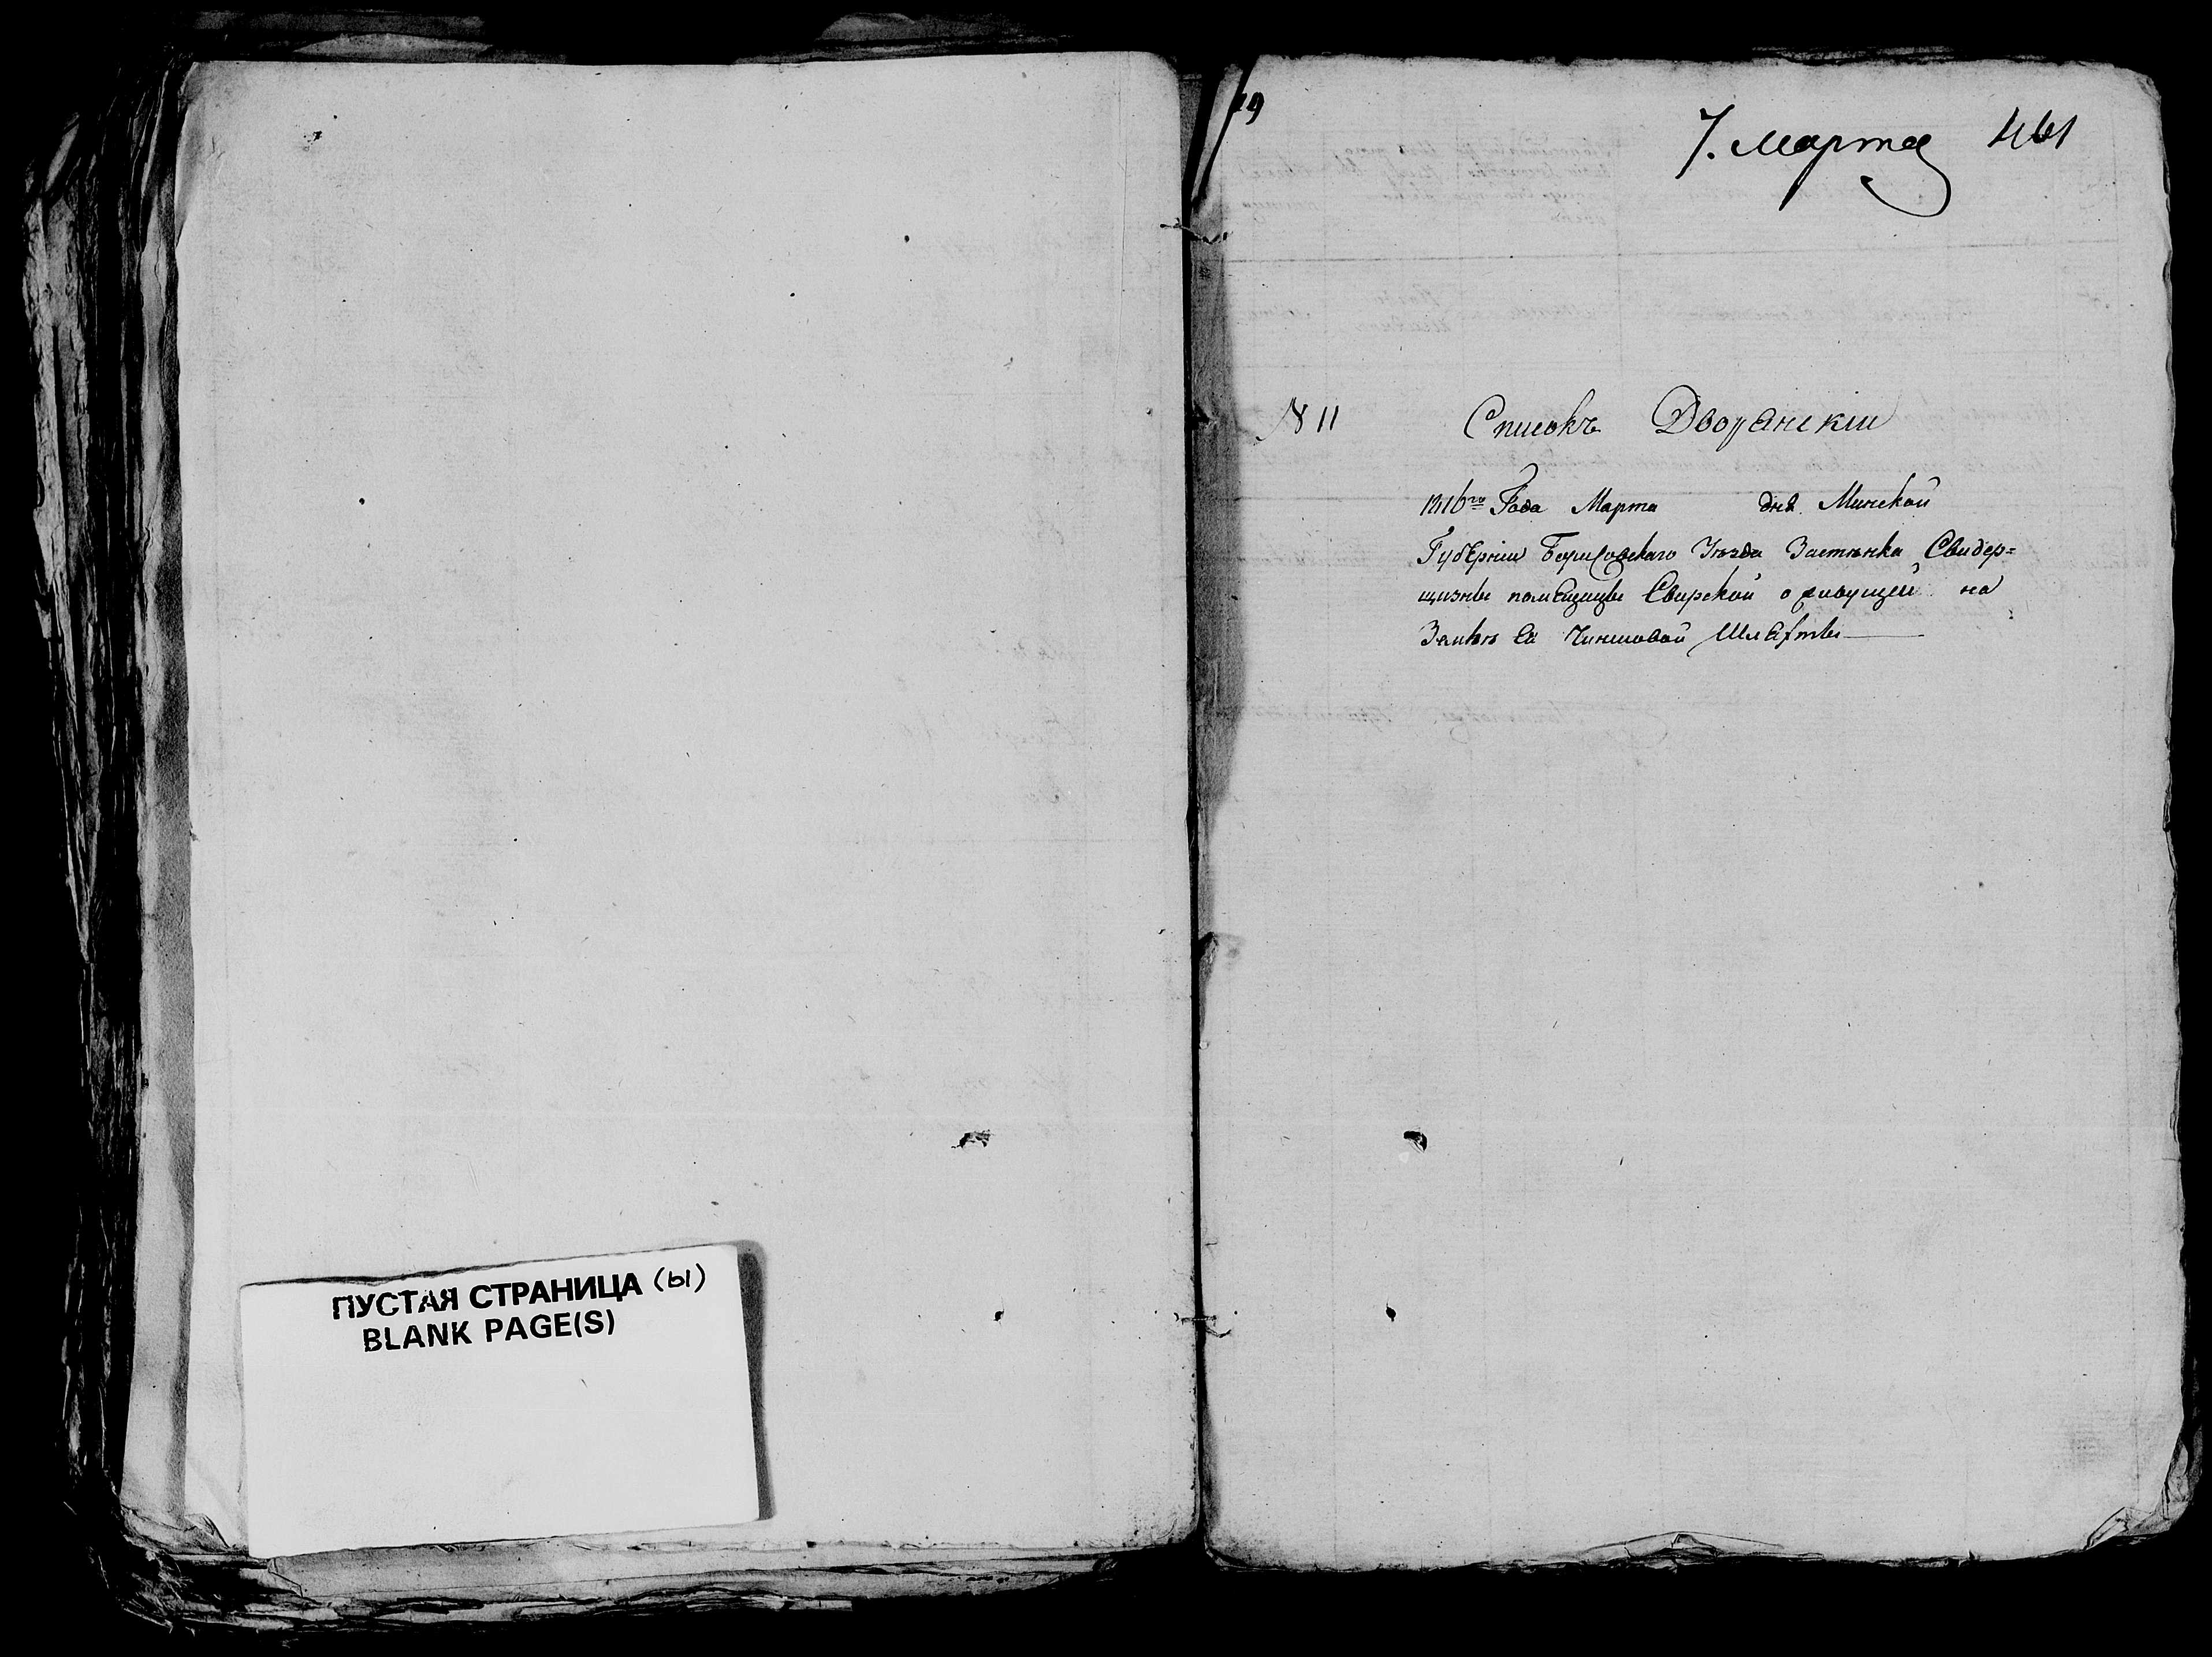 ПУСТАЯ СТРАНИЦА (ы)
BLANK PAGE(S)
19
7. Марта 461
N 11 Списокъ Дворянскiи
1816го Года Марта дня Минской
Губѣрнiи Борисовскаго Уѣзда Застѣнка Свидер=
щизны помѣщицы Свирской о живущей на
Землѣ Ея Чиншовой Шляхты